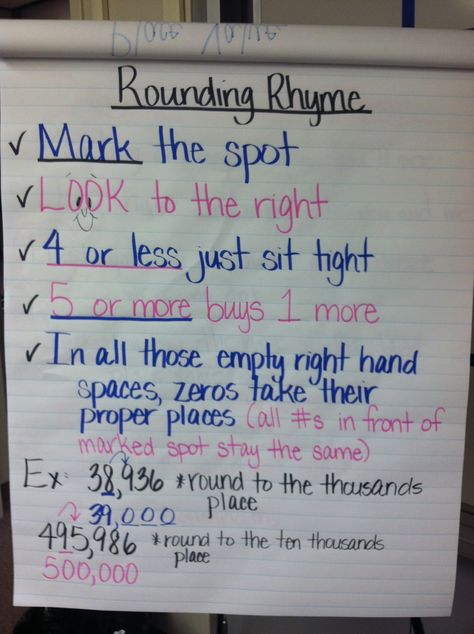 Place Value
Rounding Rhyme
✓ Mark the spot
✓ LOOK to the right
✓ 4 or less just sit tight
✓ 5 or more buys 1 more
✓ In all those empty right hand
spaces, zeros take their
proper places (all #s in front of
marked spot stay the same)
Ex: 38,936 *round to the thousands
place
39,000
495,986 *round to the ten thousands
place
500,000